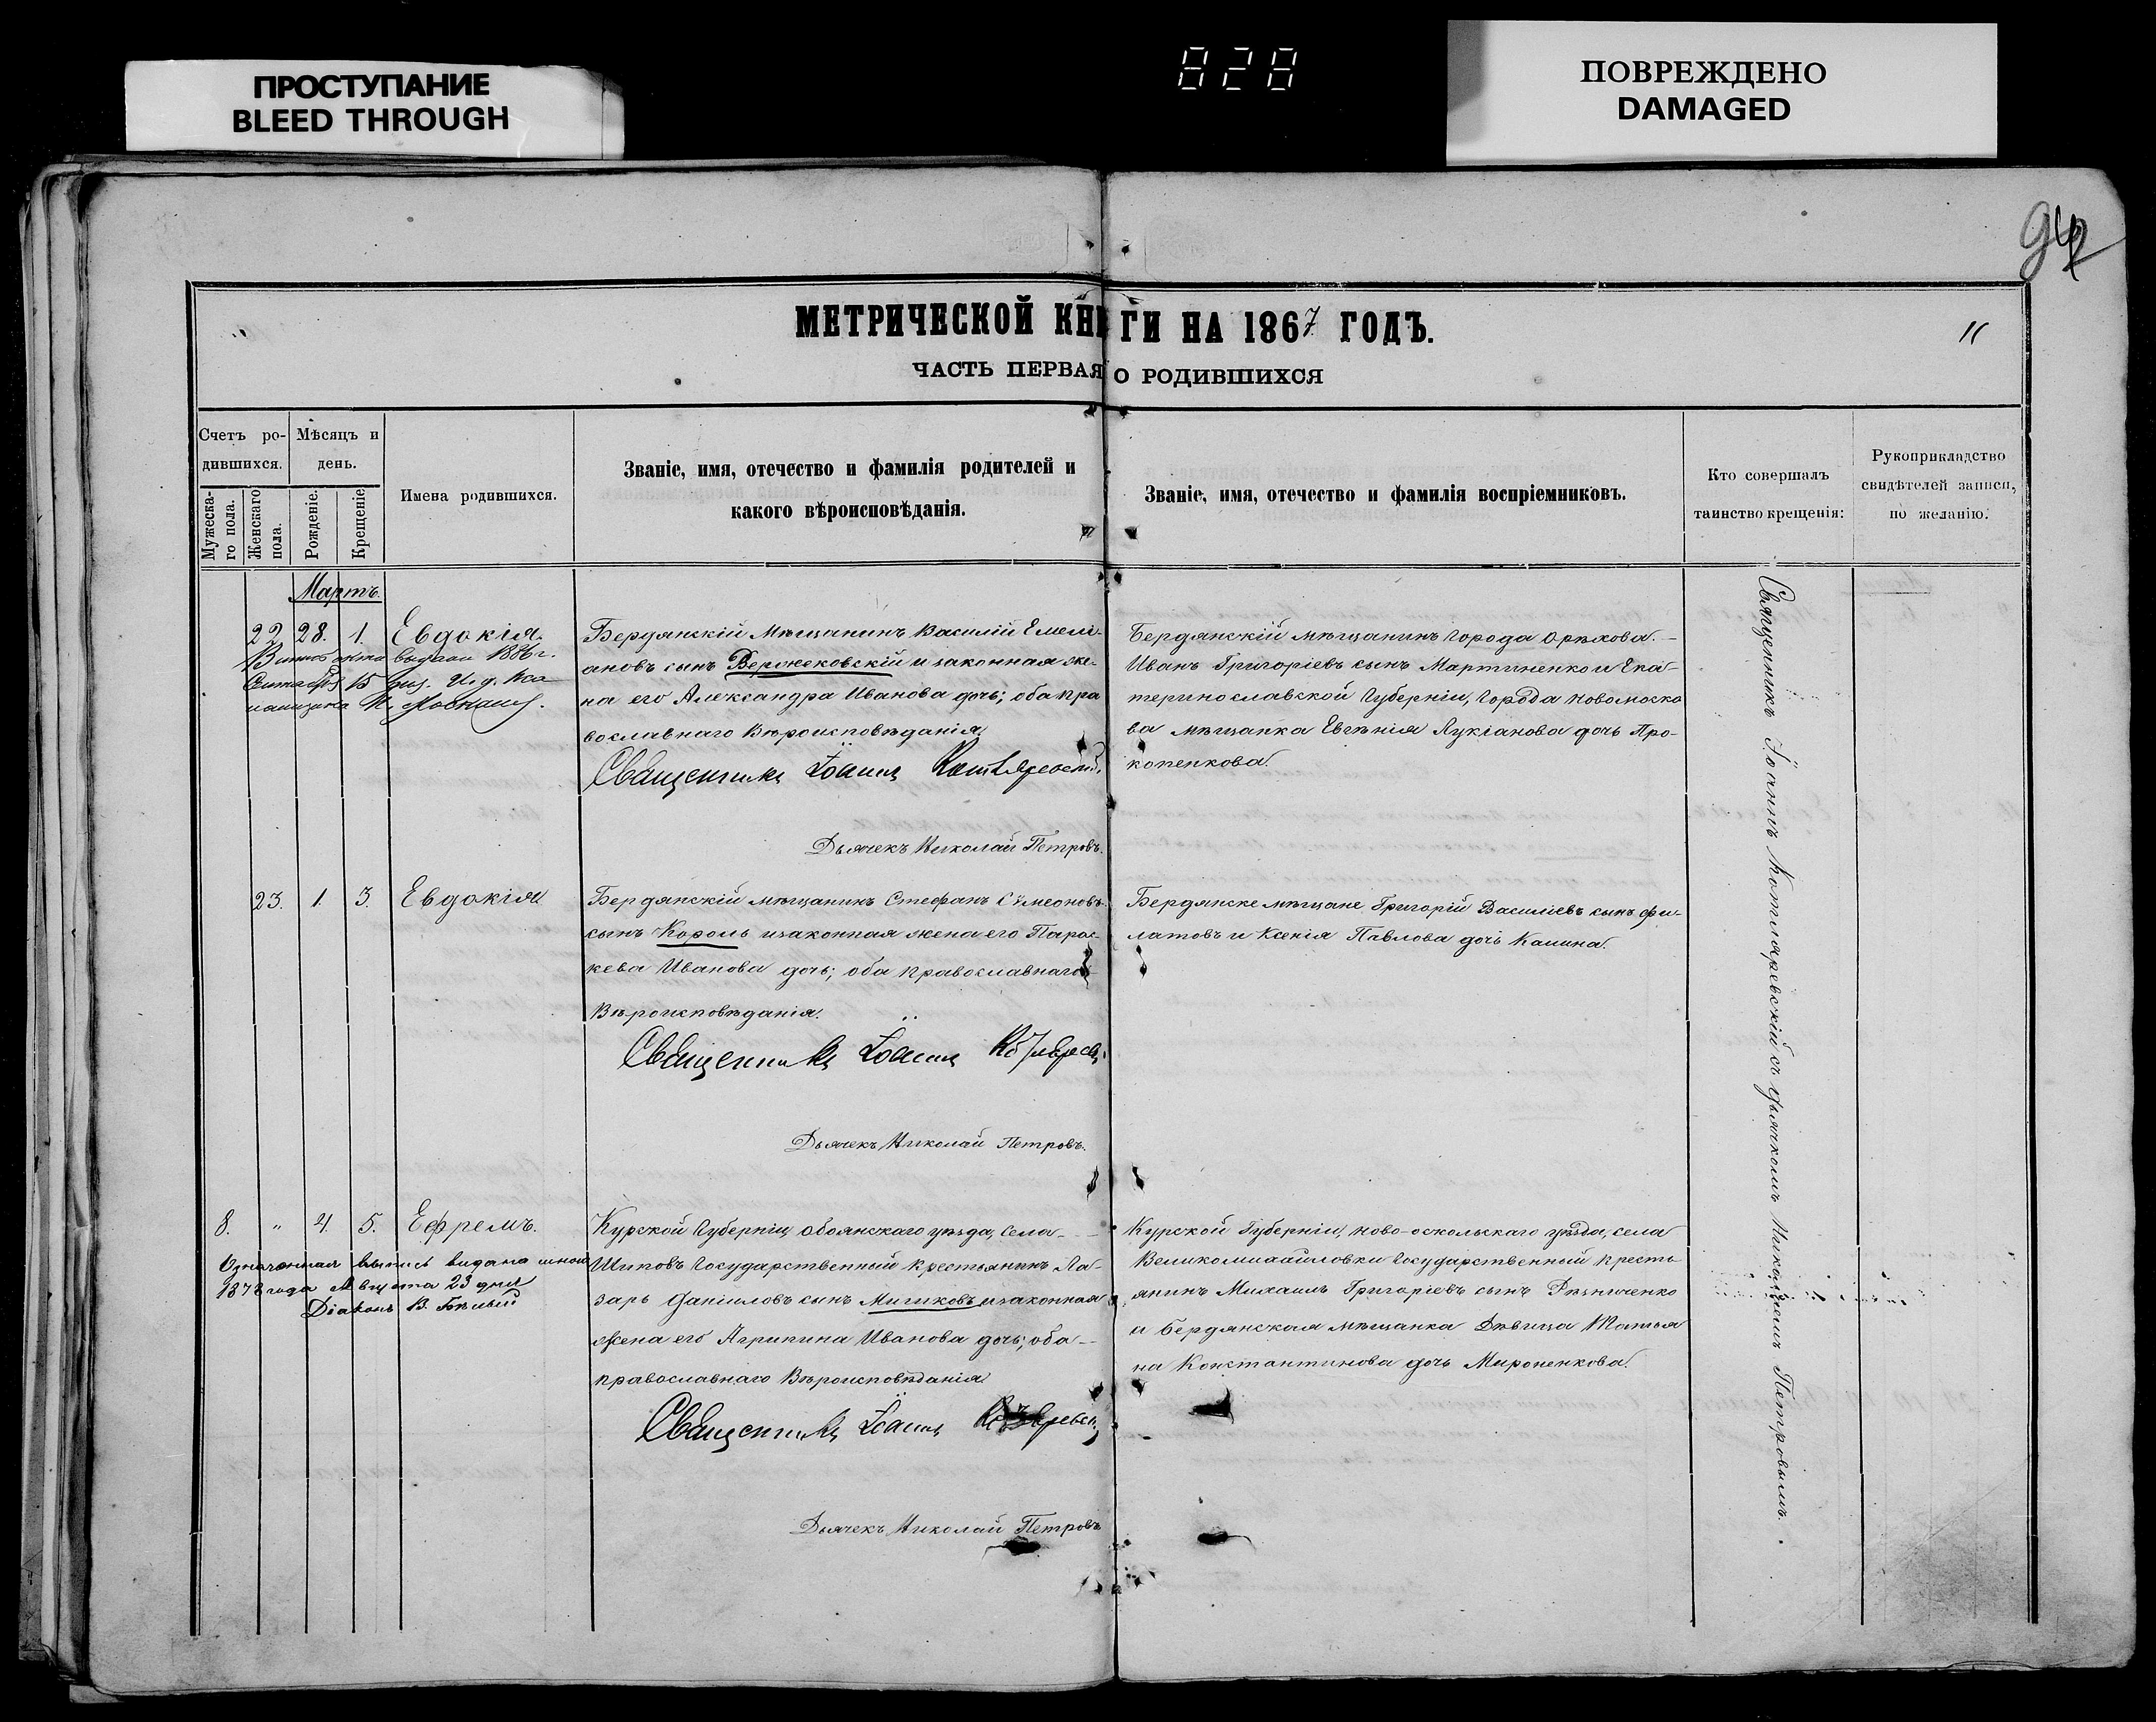 ПРОСТУПАНИЕ
BLEED THROUGH
828
ПОВРЕЖДЕНО
DAMAGED
МЕТРИЧЕСКОЙ КНИГИ НА 1867 ГОДЪ.
11
ЧАСТЬ ПЕРВАЯ О РОДИВШИХСЯ
Счетъ ро-
дившихся.
Мѣсяцъ и
день.
Мужеска-
го пола.
Женскаго
пола.
Рожденіе.
Крещеніе
Имена родившихся.
Званіе, имя, отечество и фамилія родителей и
какого вѣроисповѣданія.
Званіе, имя, отечество и фамилія воспріемниковъ.
Кто совершалъ
таинство крещенія:
Рукоприкладство
свидѣтелей записи,
по желанію.
Мартъ.
22 28. 1. Евдокія.
выдан 1886 г.
Сентября 15
Бердянскій Мѣщанинъ Василій Емелі-
ановъ сынъ Вержековскій и законная же-
на его Александра Иванова дочь; оба пра
вославнаго Вѣроисповѣданія.
Священникъ Іоаннъ Котляревскій.
Дьячекъ Николай Петровъ.
Бердянскій мѣщанинъ города Орѣхова.
Иванъ Григоріевъ сынъ Мартиненко и Ека-
теринославской Губерніи, города Новомоско
ва мѣщанка Евгѣнія Лукіанова дочь Про-
копенкова.
23. 1. 3. Евдокія
Бердянскій мѣщанинъ Стефанъ Сѵмеоновъ
сынъ Король изаконная жена его Парас-
кева Иванова дочь; оба православнаго
Вѣроисповѣданія.
Священникъ Іоаннъ Котляревс
Дьячекъ Николай Петровъ.
Бердянске мѣщане Григорій Василіевъ сынъ Фи-
латовъ и Ксенія Павлова дочь Канина.
8. " 4. 5. Ефремъ.
выпись видана мной
1878 года Августа 23 дня
Діаконъ В. Бѣлый
Курской Губерніи, Обоянскаго уѣзда, села
Шиповъ Государственный Крестьянинъ Ла-
зарь Даніиловъ сынъ Мишковъ изаконная
жена его Агрипина Иванова дочь; оба
православнаго Вѣроисповѣданія
Священникъ Іоаннъ Котляревск
Дьячекъ Николай Петровъ
Курской Губерніи, Ново-оскольскаго уѣзда, села
Великомихайловки Государственный Кресть
янинъ Михаилъ Григоріевъ сынъ Рѣзниченко
и Бердянская мѣщанка Дѣвица Татья
на Константинова дочь Мироненкова.
Священникъ Іоаннъ Котляревскій съ дьячкомъ Николаемъ Петровымъ.